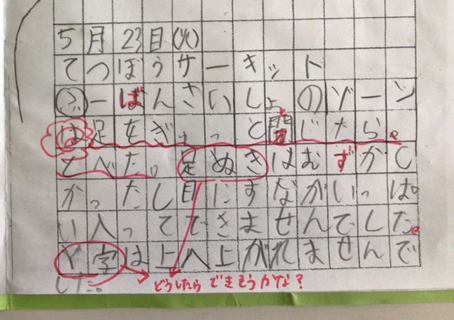 5月23日(火)
てつぼうサーキット
①一ばんさいしょのゾーン
は足をぎゅっと閉じたら。
とべた。足ぬきはむずかし
かったし目にすながいっぱ
い入ってできませんでした。
Y字は上へ上がれませんで
した。
どうしたらできそうかな?